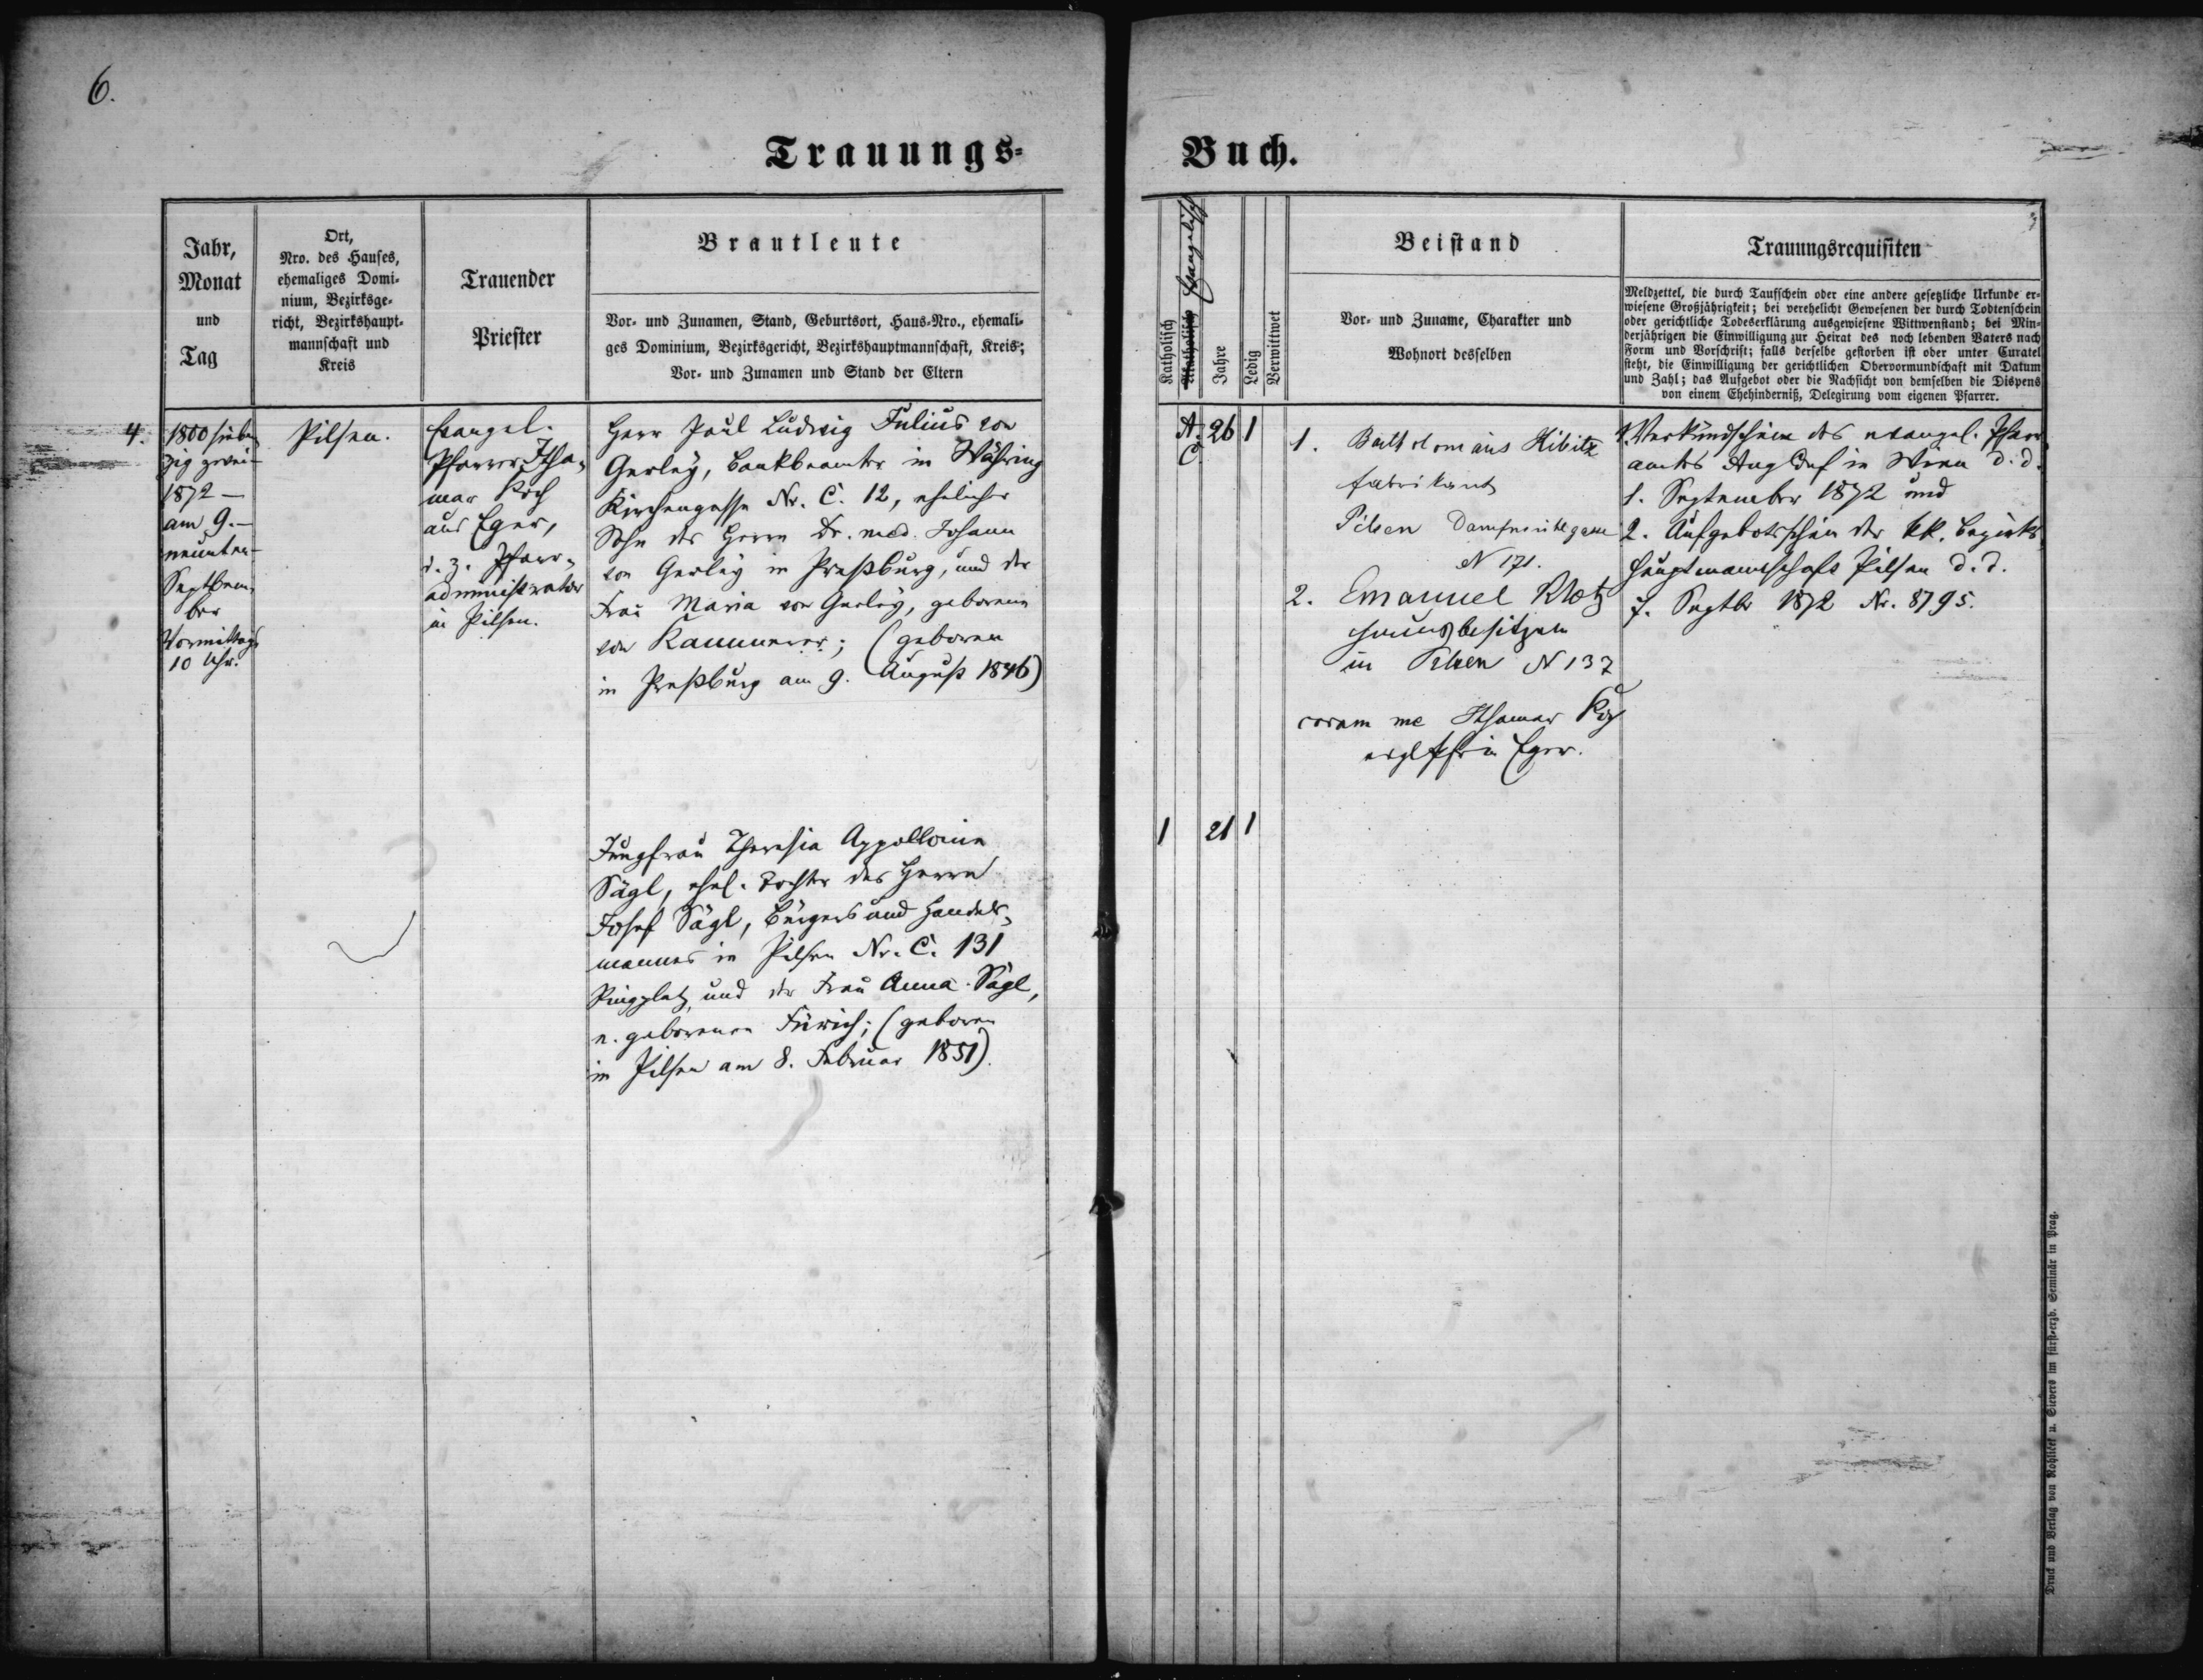 6.
Trauungs-
Buch.
Jahr,
Monat
und
Tag
Ort,
Nro. des Hauses,
ehemaliges Domi-
nium, Bezirksge-
richt, Bezirkshaupt-
mannschaft und
Kreis
Trauender
Priester
Brautleute
Vor- und Zunamen, Stand, Geburtsort, Haus-Nro., ehemali-
ges Dominium, Bezirksgericht, Bezirkshauptmannschaft, Kreis;
Vor- und Zunamen und Stand der Eltern
Katholisch
Akatholisch Evangelisch
Jahre
Ledig
Verwittwet
Beistand
Vor- und Zuname, Charakter und
Wohnort desselben
Trauungsrequisiten
Meldzettel, die durch Taufschein oder eine andere gesetzliche Urkunde er-
wiesene Großjährigkeit; bei verehelicht Gewesenen der durch Todtenschein
oder gerichtliche Todeserklärung ausgewiesene Wittwenstand; bei Min-
derjährigen die Einwilligung zur Heirat des noch lebenden Vaters nach
Form und Vorschrift; falls derselbe gestorben ist oder unter Curatel
steht, die Einwilligung der gerichtlichen Obervormundschaft mit Datum
und Zahl; das Aufgebot oder die Nachsicht von demselben die Dispens
von einem Ehehinderniß, Delegirung vom eigenen Pfarrer.
4.
1800 sieben
zig zwei-
1872 -
am 9. -
neunten-
Septbem-
ber
Vormittags
10 Uhr.
Pilsen.
Evangel.
Pfarrer Itha-
mar Koch
aus Eger,
d. z. Pfarr-
administrator
in Pilsen.
Herr Paul Ludwig Julius von
Gerley, Bankbeamter in Währing
Kirchengasse Nr. C. 12, ehelicher
Sohn des Herrn Dr. med. Johann
von Gerley in Preßburg, und der
Frau Maria von Gerley, geborenen
von Kammerer; (geboren
in Preßburg am 9. August 1846)
Jungfrau Theresia Appollonia
Sägl, ehel. Tochter des Herrn
Josef Sägl, Bürgers und Handels-
mannes in Pilsen Nr. C. 131
Ringplatz, und der Frau Anna Sägl,
n. geborenen Fürich; (geboren
in Pilsen am 8. Februar 1851).
A. 26 1
C.
1 21 1
1. Bartolomäus Kibitz
Fabrikant
Pilsen Dampfmühlgasse
N 171.
2. Emanuel Klotz
Hausbesitzer
in Pilsen N 137
coram me Ithamar Koch
evgl Pfr in Eger.
1. Verkündschein des evangel. Pfarr
amtes Aug Conf in Wien d. d.
1. September 1872 und
2. Aufgebotsschein der kk. Bezirks
hauptmannschaft Pilsen d. d.
7. Septbr 1872 Nr. 8795.
Druck und Verlag von Rohliček u. Sievers im fürst-erzb. Seminär in Prag.